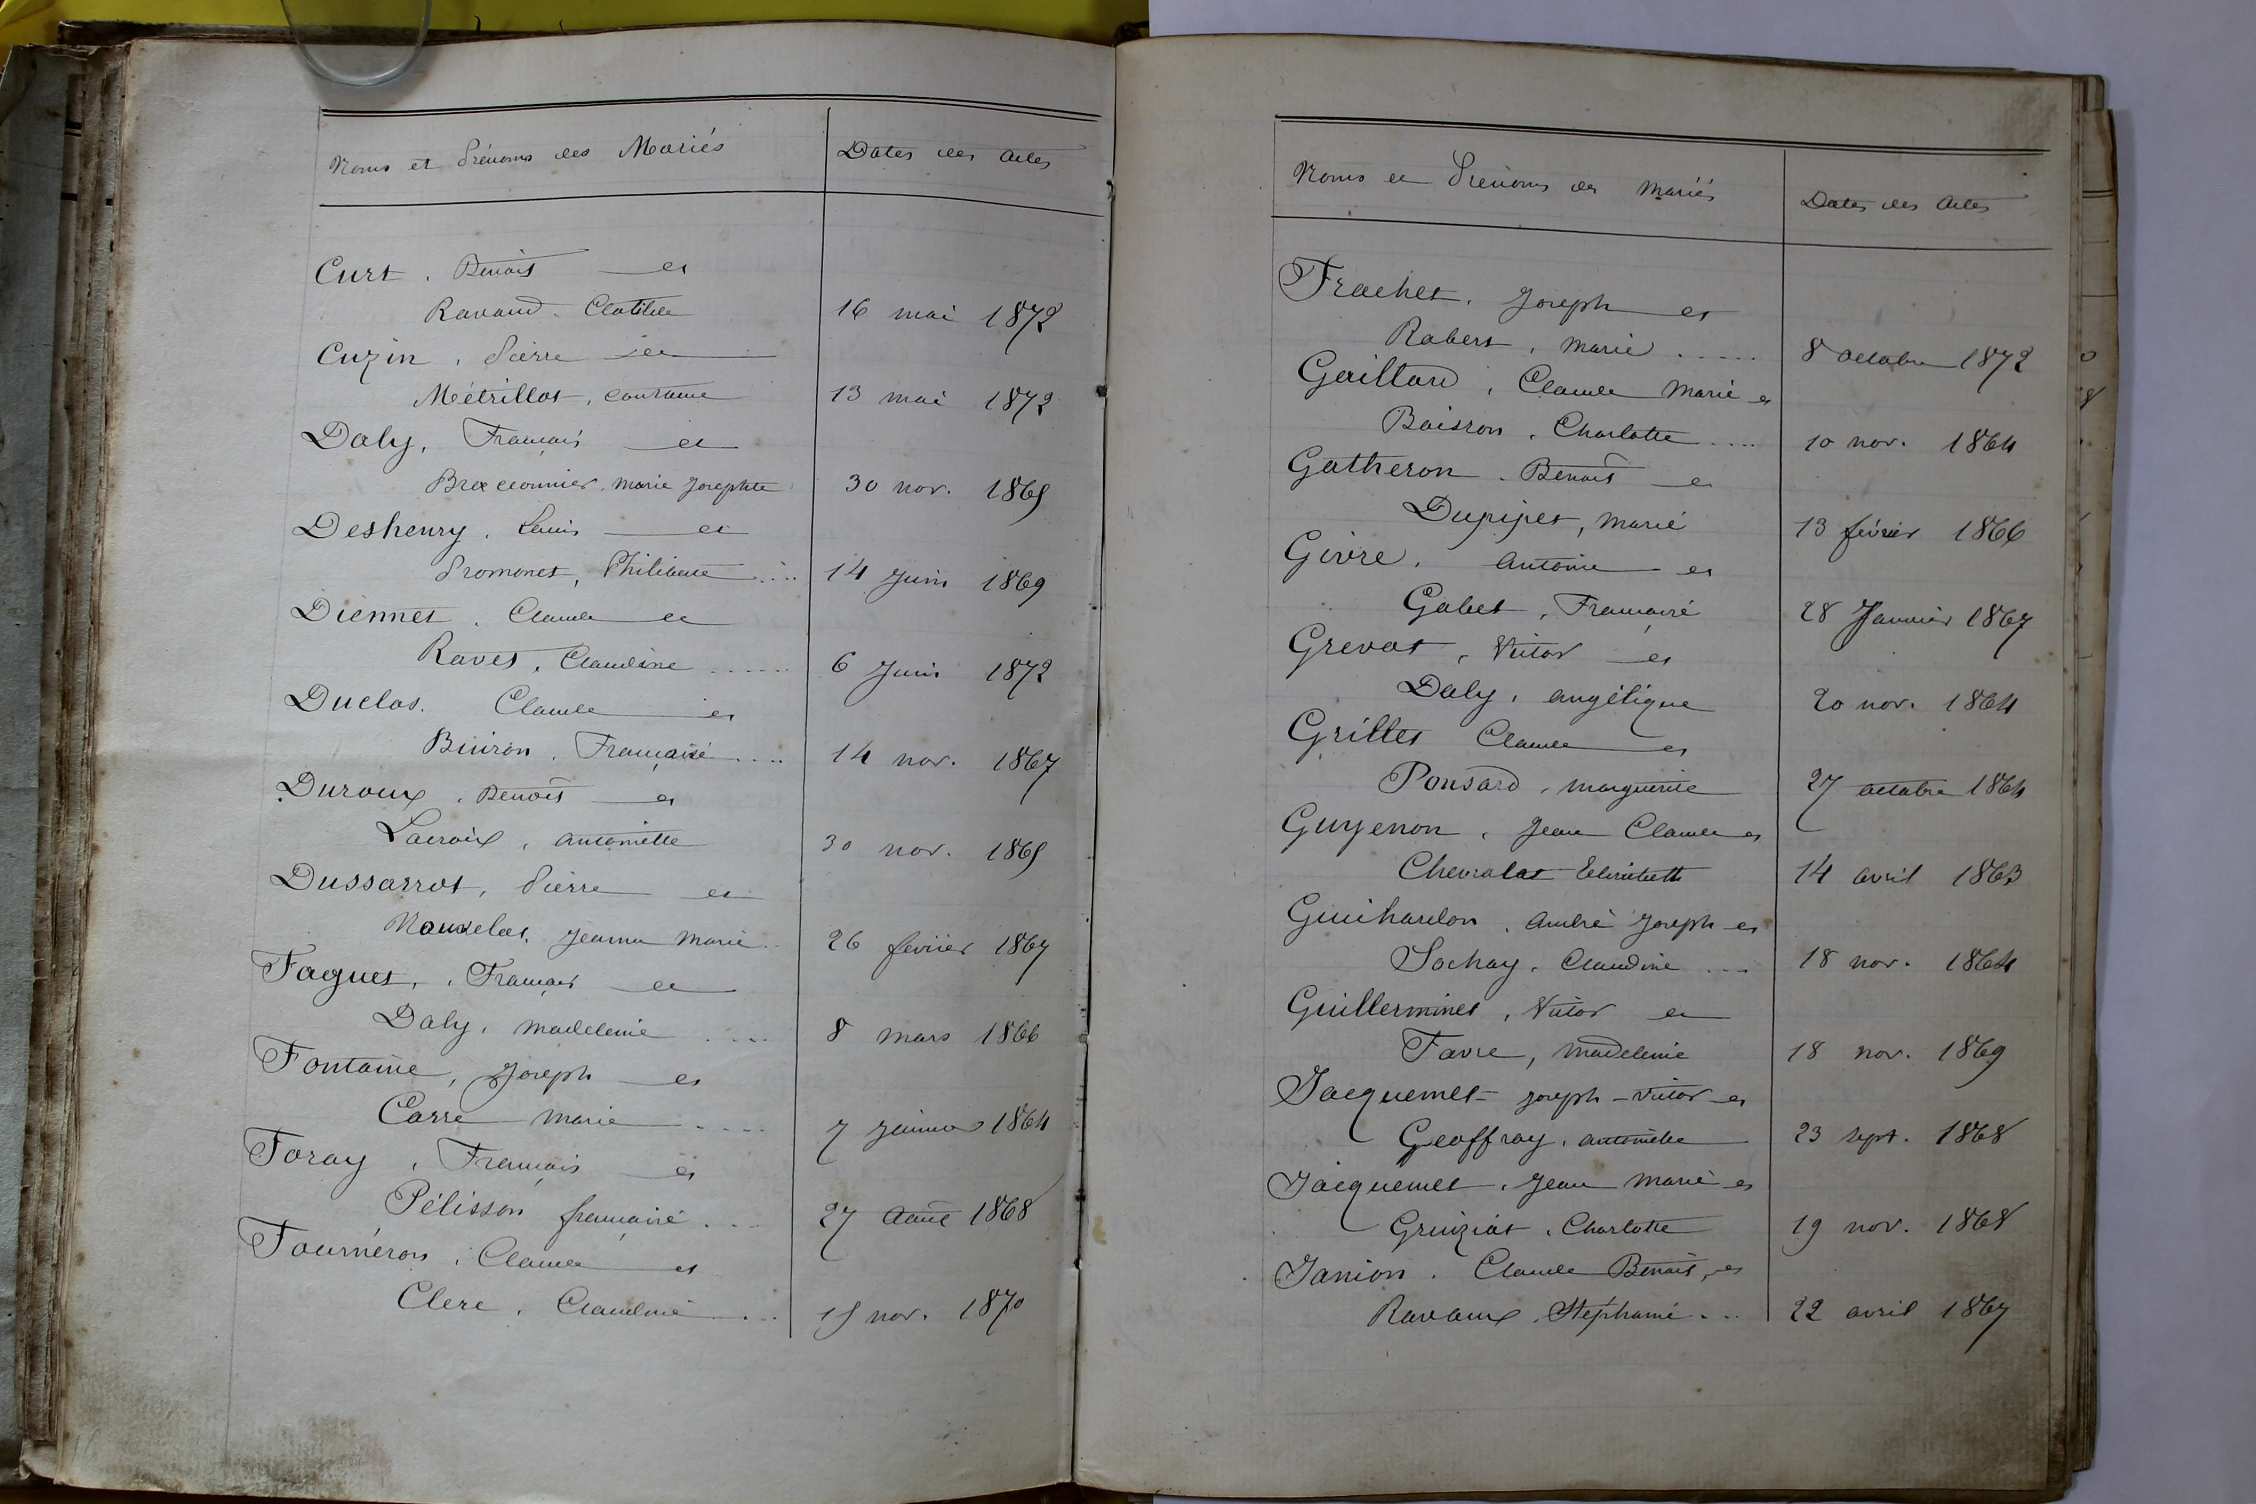 Noms et Prénoms des Mariés
Dates des Actes
Curt, Benoit et
Ravaud Clotilde
16 mai 1872
Cuzin, Pierre et
Métrillot, Constance
13 mai 1872
Daly, François et
Braconnier, Marie Josephte
30 nov. 1865
Deshenry, Louis et
Promonet, Philiberte
14 Juin 1869
Diennet, Claude et
Ravet, Claudine
6 Juin 1872
Duclos, Claude et
Buiron, Françoise
14 nov. 1867
Duroux, Benoît et
Lacroix, Antoinette
30 nov. 1865
Dussarrot, Pierre et
Jeanne Marie
26 février 1867
Faguet, François et
Daly, Madeleine
8 mars 1866
Fontaine, Joseph et
Carre Marie
7 Janvier 1864
Foray, François et
Pélisson françoise
27 Août 1868
Fournéron, Claude et
Clerc, Claudine
15 nov. 1870
Noms et Prénoms des Mariés
Dates des Actes
Frachet, Joseph et
Robert, Marie
8 Octobre 1872
Gaillard, Claude Marie et
Boisson, Charlotte
10 nov. 1864
Gatheron, Benoît et
Dupipet, Marie
13 février 1866
Givre, Antoine et
Gobet, Françoise
28 Janvier 1867
Grevat, Victor et
Daly, Angélique
20 nov. 1864
Grillet Claude et
Ponsard, Marguerite
27 octobre 1864
Guyenon, Jean Claude et
Chevalat Elisabeth
14 avril 1863
Guichardon, André Joseph et
Sochay, Claudine
18 nov. 1864
Guillerminet, Victor et
Favre, Madeleine
18 nov. 1869
Jacquemet Joseph-Victor et
Geoffray, Antoinette
23 sept. 1868
Jacquemet, Jean Marie et
Gruiziat, Charlotte
19 nov. 1868
Janion, Claude Benoit, et
Ravaux, Stéphanie
22 avril 1867